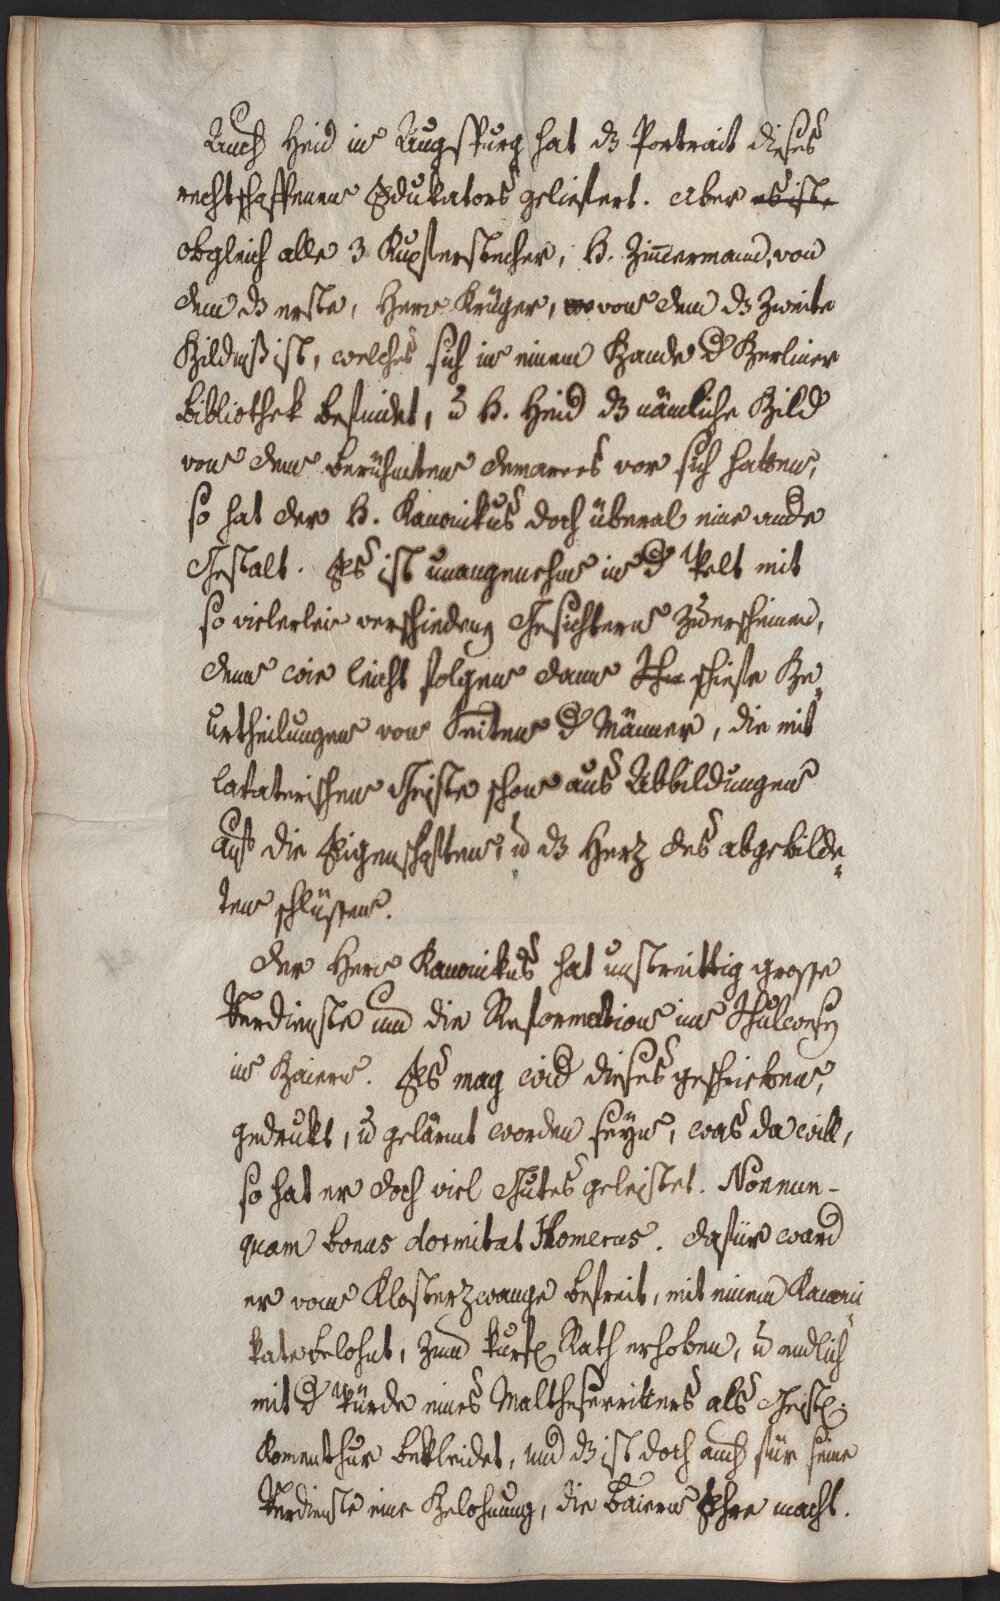 Auch Heid in Augspurg hat dz Portrait dieses
rechtschaffenen Edukators geliefert. Aber es ist
obgleich alle 3 Kupferstecher, H. Zim̄ermann, von
dem dz erste, Herr Krüger, von dem dz zweite
Bildniß ist, welches sich in einem Bande d Berliner
Bibliothek befindet, u H. Heid dz nämliche Bild
von dem berühmten Demarees vor sich hatten,
so hat der H. Kanonikus doch überal eine ande
Gestalt. Es ist unangenehm in d Welt mit
so vielerlei verschieden Gesichtern zu erscheinen,
denn wie leicht folgen dann schiefe Be„
urtheilungen von Seiten d Männer, die mit
lavaterischen Geiste schon aus Abbildungen
auf die Eigenschaften, u dz Herz des abgebilde„
ten schlüssen.
Der Herr Kanonikus hat unstreittig grosse
Verdienste um die Reformation im Schulwesen
in Baiern. Es mag wid dieses geschrieben,
gedrukt, u gelärmt worden seyn, was da will,
so hat er doch viel Gutes geleistet. Nonnun-
quam bonus dormitat Homerus. Dafür ward
er vom Klosterzwange befreit, mit einem Kanoni
kate belohnt, zum kurf. Rath erhoben, u endlich
mit d Würde eines Maltheserritters als Geistl.
Komenthur bekleidet, und dz ist doch auch für seine
Verdienste eine Belohnung, die Baiern Ehre macht.